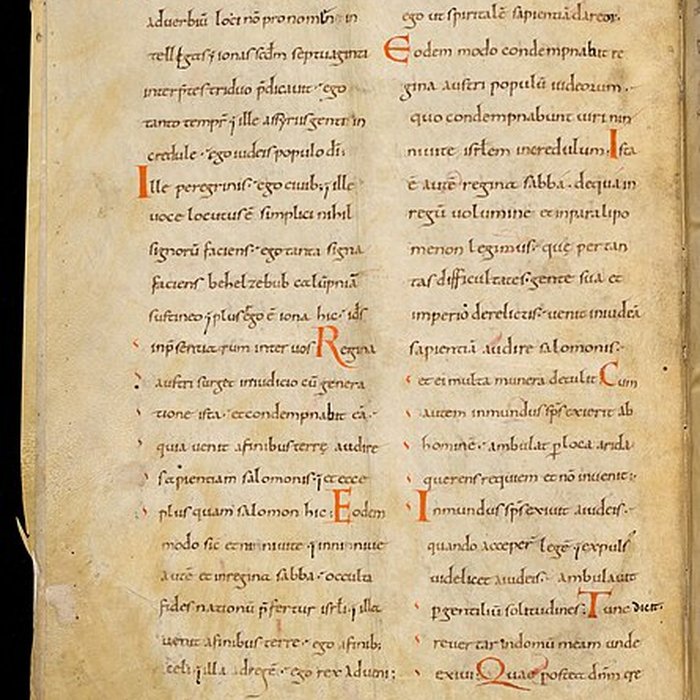 adverbiū loci nō pronomīn in
tellegas; ionas scdm septuaginta
interp̄tes triduo p̄dicauit · ego
tanto tempr̄; ille assyriis genti in
credule · ego iudeis populo dī;
Ille peregrinis · ego ciuib; ille
uoce locutus ē simplici nihil
signorū faciens · ego tanta signa
faciens behelzebub calūpniā
sustineo; plus ḡo ē iona hic · idē
inp̄sentiarum inter uos Regina
austri surget iniudicio cū genera
tione ista · et condempnabit eā ·
quia uenit afinibus terrę audire
sapientiam salomonis; et ecce
plus quam salomon hic; Eodem
modo sic et niniuite; in niniue
autē et inregina sabba · occulta
fides nationū p̄fertur isrl̄i; illa
uenit afinibus terre · ego afinib;
celi; illa adregē · ego rex adueni;
ego ut spiritalē sapientiā darer ·
Eodem modo condempnabit re
gina austri populū iudeorum ·
quo condempnabunt uiri nin
niuite isrl̄em incredulum Ista
ē autē regina sabba · de qua in
regū uolumine et inparalipo
menon legimus · quę per tan
tas difficultates · gente sua et
imperio derelictis · uenit iniudeā
sapientiā audire salomonis ·
et ei multa munera detulit Cum
autem inmundus sp̄s exierit ab
homine · ambulat p loca arida
querens requiem et nō inuenit ·
Inmundus sp̄s exiuit aiudeis ·
quando acceper̄ legē; expuls
uidelicet aiudeis · ambulauit
p gentiliū solitudines; Tunc dicit
reuertar indomū meam unde
exiui Quae postea dn̄m cre